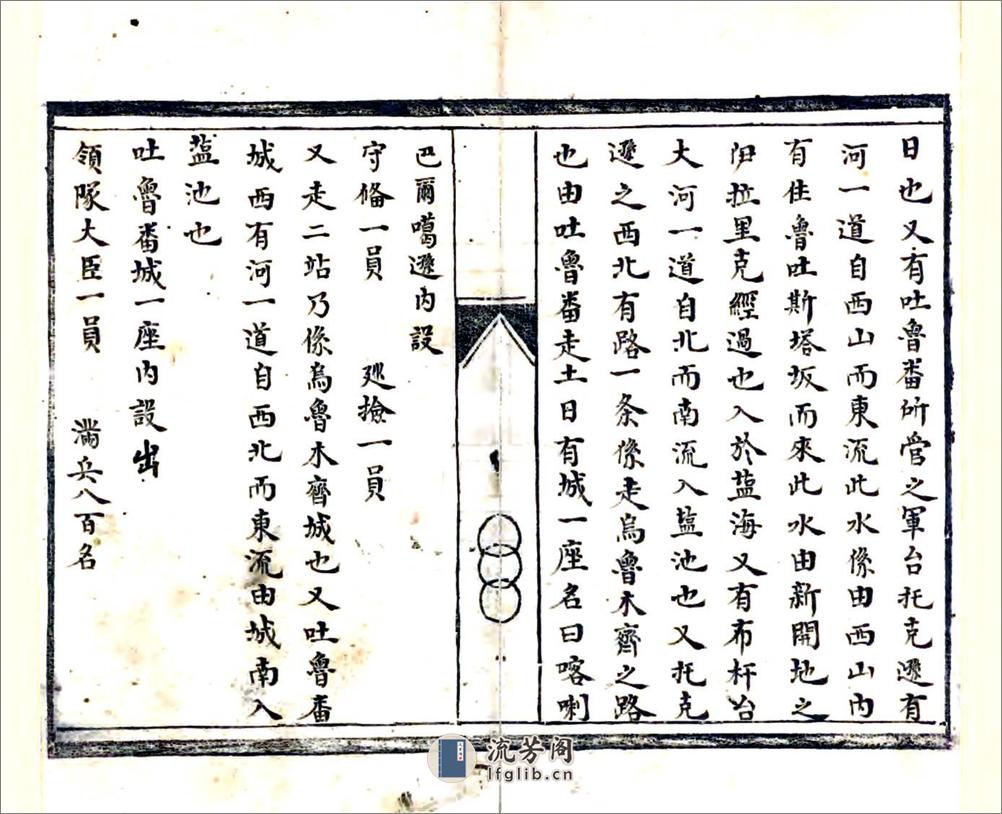 日也又有吐魯番所管之軍台托克遜有
河一道自西山而東流此水係由西山内
有住魯吐斯塔坂而來此水由新開地之
伊拉里克經過也入於塩海又有布杆台
大河一道自北而南流入塩池也又托克
遜之西北有路一条係走烏魯木齊之路
也由吐魯番走土日有城一座名曰喀喇
巴爾噶遜内設
守俻一員 廵撿一員
又走二站乃係烏魯木齊城也又吐魯番
城西有河一道自西北而東流由城南入
塩池也
吐魯番城一座内設出
領隊大臣一員 滿兵八百名
流芳阁
lfglib.cn